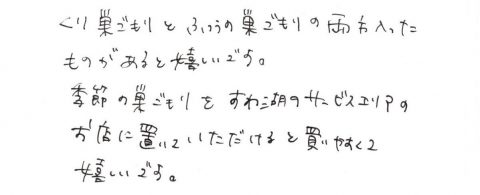 くり巣ごもりとふつうの巣ごもりの両方入った
ものがあると嬉しいです。
季節の巣ごもりをすわ湖のサービスエリアの
お店に置いていただけると買いやすくて
嬉しいです。